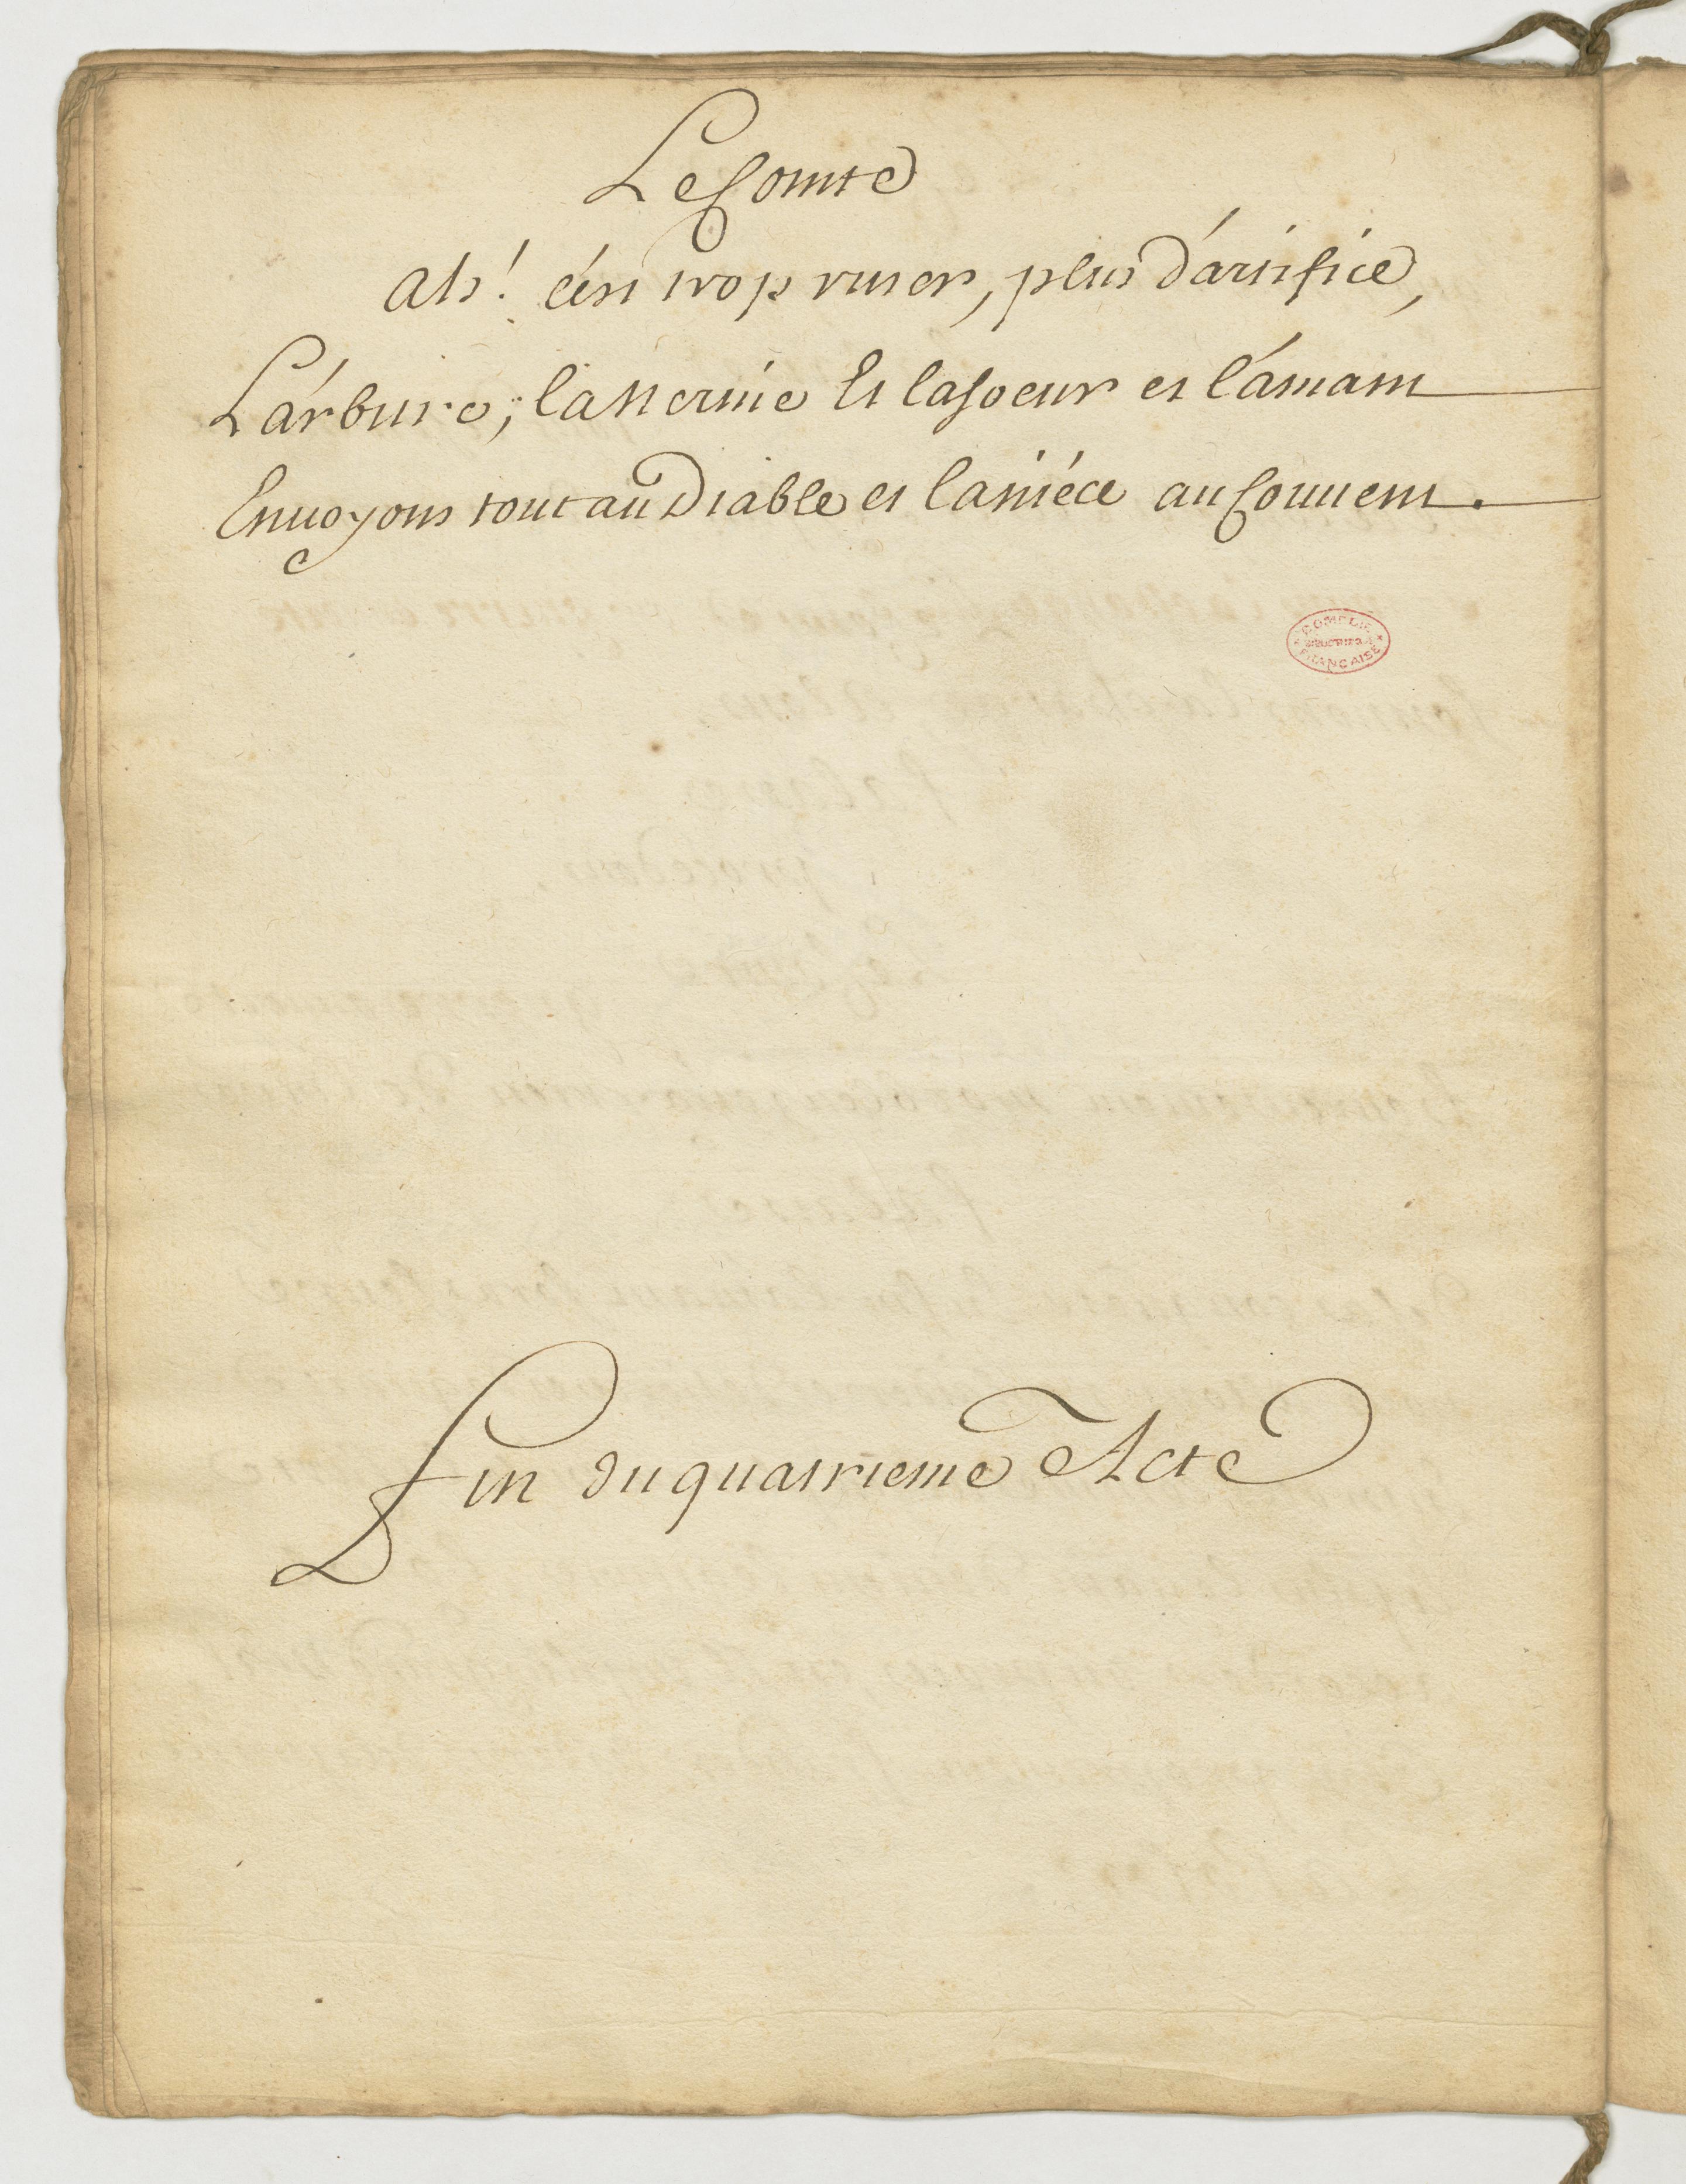 Le Comte
Ah! c'est trop ruser, plus d'artifice,
L'arbitre, la Nerine Et la soeur et l'amant
Envoyons tout au Diable et la niéce au Couvent.
COMÉDIE
FRANÇAISE
Fin du quatrieme Acte